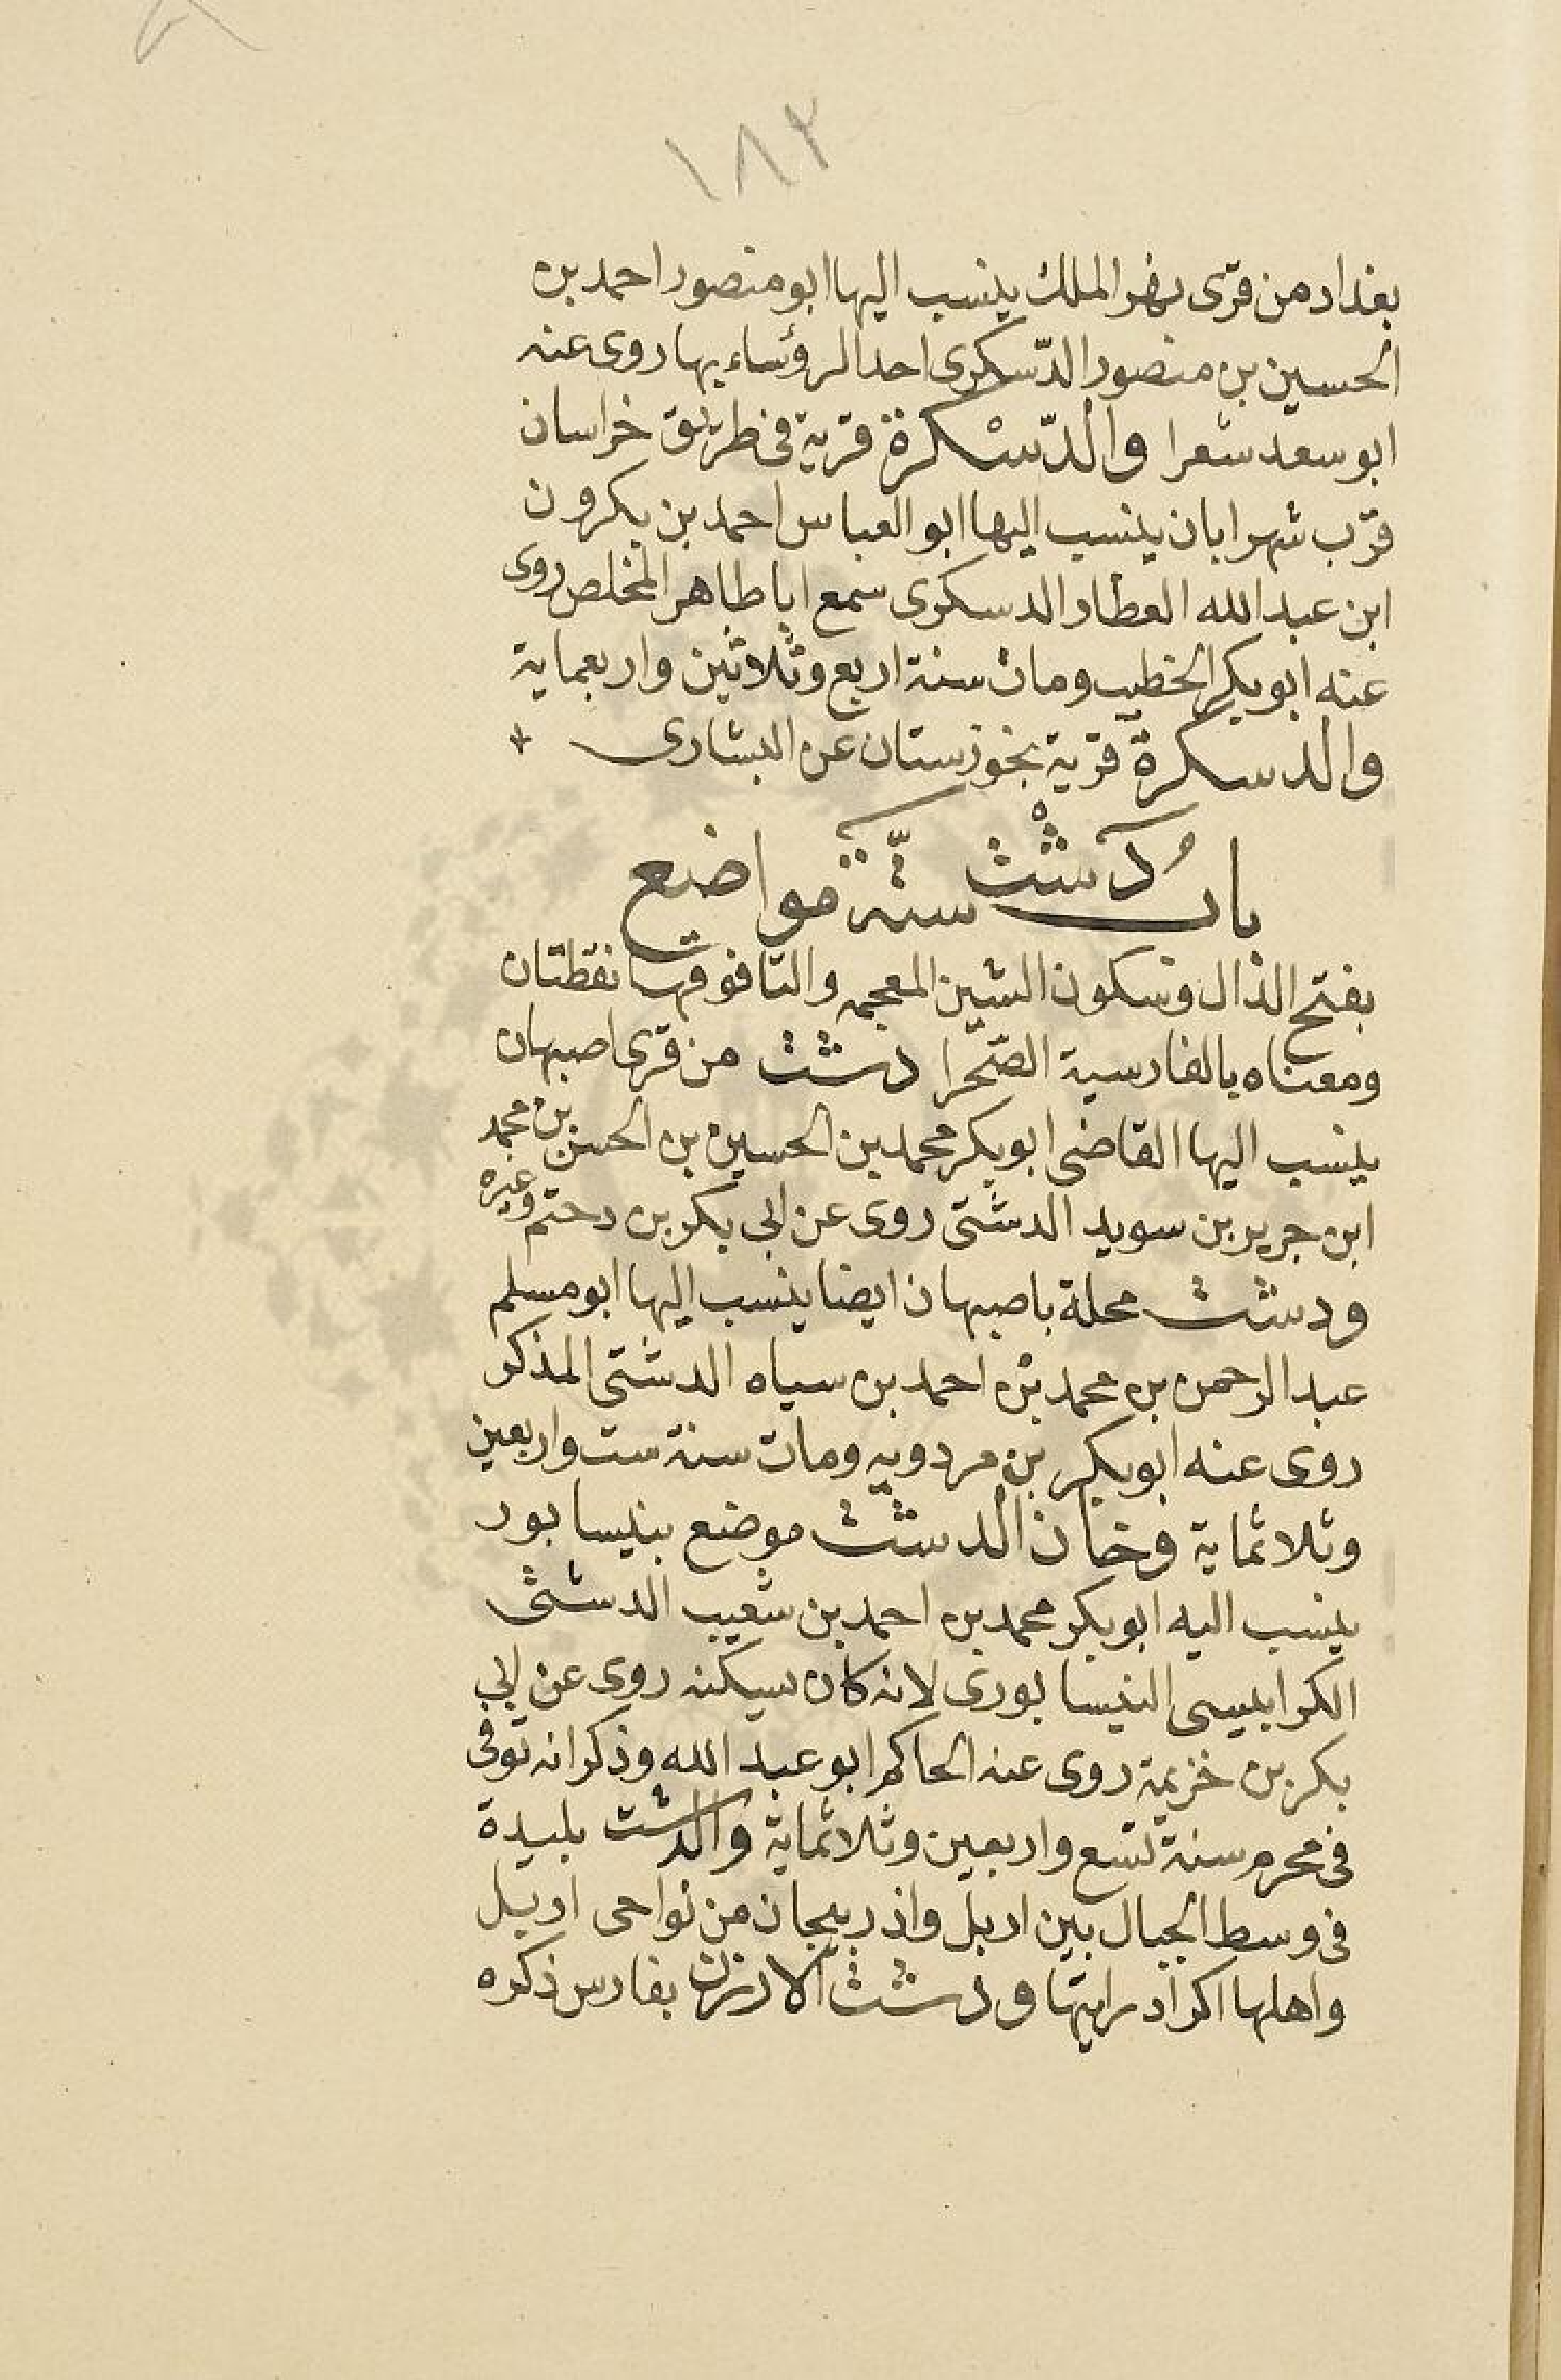 ١٨٢
بغداد من قرى نهر الملك ينسب اليها ابو منصور احمد بن
الحسين بن منصور الدّسكرى احد الرؤساء بها روى عنه
ابو سعد شعرا والدّسْكرة قرية فى طريق خراسان
قرب شهرابان ينسب اليها ابو العباس احمد بن بكرون
ابن عبد الله العطار الدسكرى سمع ابا طاهر المخلص روى
عنه ابو بكر الخطيب ومات سنة اربع وثلاثين واربعماية
والدسكرة قرية بخوزستان عن البشارى
بابُ دَشْت ستّة مواضع
بفتح الذال وسكون الشين المعجمه والتا فوقها نقطتان
ومعناه بالفارسية الصّحرا دشت من قرى اصبهان
ينسب اليها القاضى ابو بكر محمد بن الحسين بن الحسن بن محمد
ابن جرير بن سويد الدشتى روى عن ابى بكر بن دحتم وغيره
ودشت محلة باصبهان ايضا ينسب اليها ابو مسلم
عبد الرحمن بن محمد بن احمد بن سياه الدشتى المذكر
روى عنه ابو بكر بن مردويه ومات سنة ست واربعين
وثلاثماية وخان الدشت موضع بنيسابور
ينسب اليه ابو بكر محمد بن احمد بن شعيب الدشتى
الكرابيسى النيسابورى لانه كان يسكنه روى عن ابى
بكر بن خزيمة روى عنه الحاكم ابو عبد الله وذكر انه توفى
فى محرم سنة تسع واربعين وثلاثماية والدشت بليدة
فى وسط الجبال بين اربل واذربيجان من نواحى اربل
واهلها اكراد رايتها ودشت الارزن بفارس ذكره